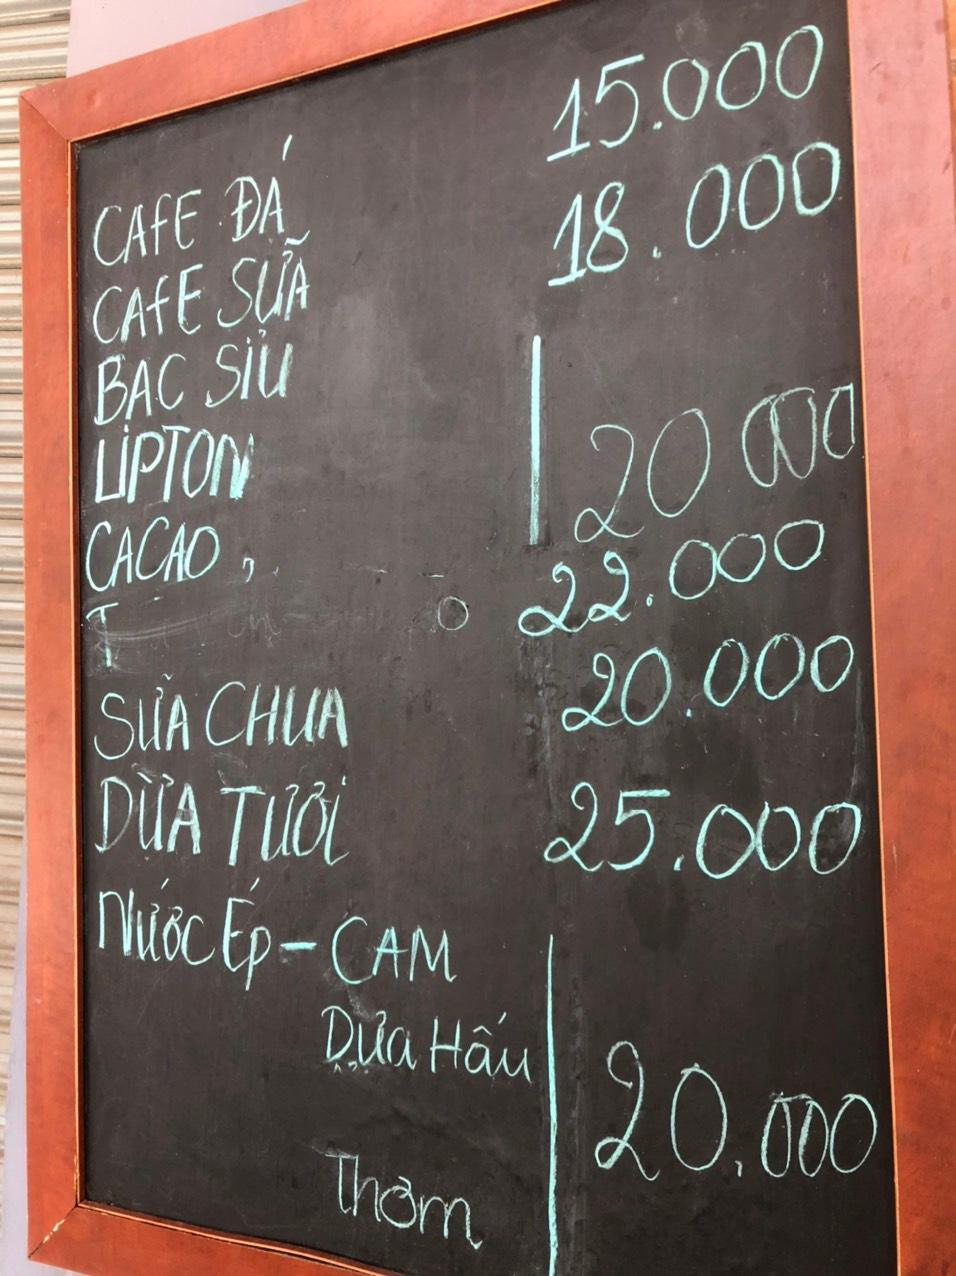 CAFE ĐÁ 15.000
CAFE SỮA 18.000
BAC SỈU
LIPTON 20 000
CACAO
22.000
SỮA CHUA 20.000
DỪA TƯƠI 25.000
NƯỚC ÉP - CAM
Dưa Hấu 20.000
Thơm